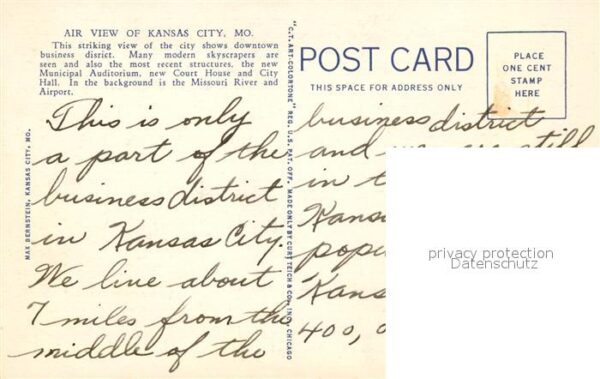 AIR VIEW OF KANSAS CITY, MO.
This striking view of the city shows downtown
business district. Many modern skyscrapers are
seen and also the most recent structures, the new
Municipal Auditorium, new Court House and City
Hall. In the background is the Missouri River and
Airport.
This is only
a part of the
business district
in Kansas City.
We live about
7 miles from the
middle of the
MAX BERNSTEIN, KANSAS CITY, MO.
"C.T. ART-COLORTONE" REG. U.S. PAT. OFF. MADE ONLY BY CURT TEICH & CO., INC., CHICAGO
POST CARD
THIS SPACE FOR ADDRESS ONLY
PLACE
ONE CENT
STAMP
HERE
business district
and we are still
in
Kans
popu
Kans
400,
privacy protection
Datenschutz